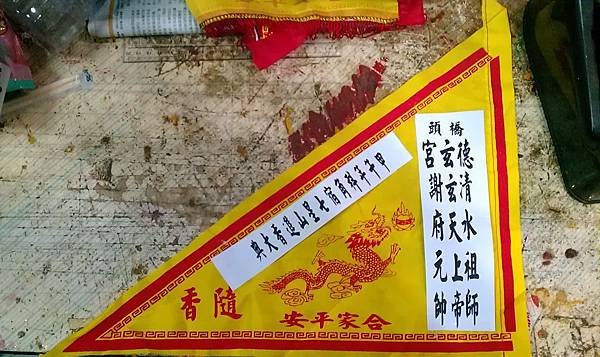 橋頭
德玄宮
清水祖師
玄天上帝
謝府元帥
甲午年角宿七星山進香大典
隨香
合家平安